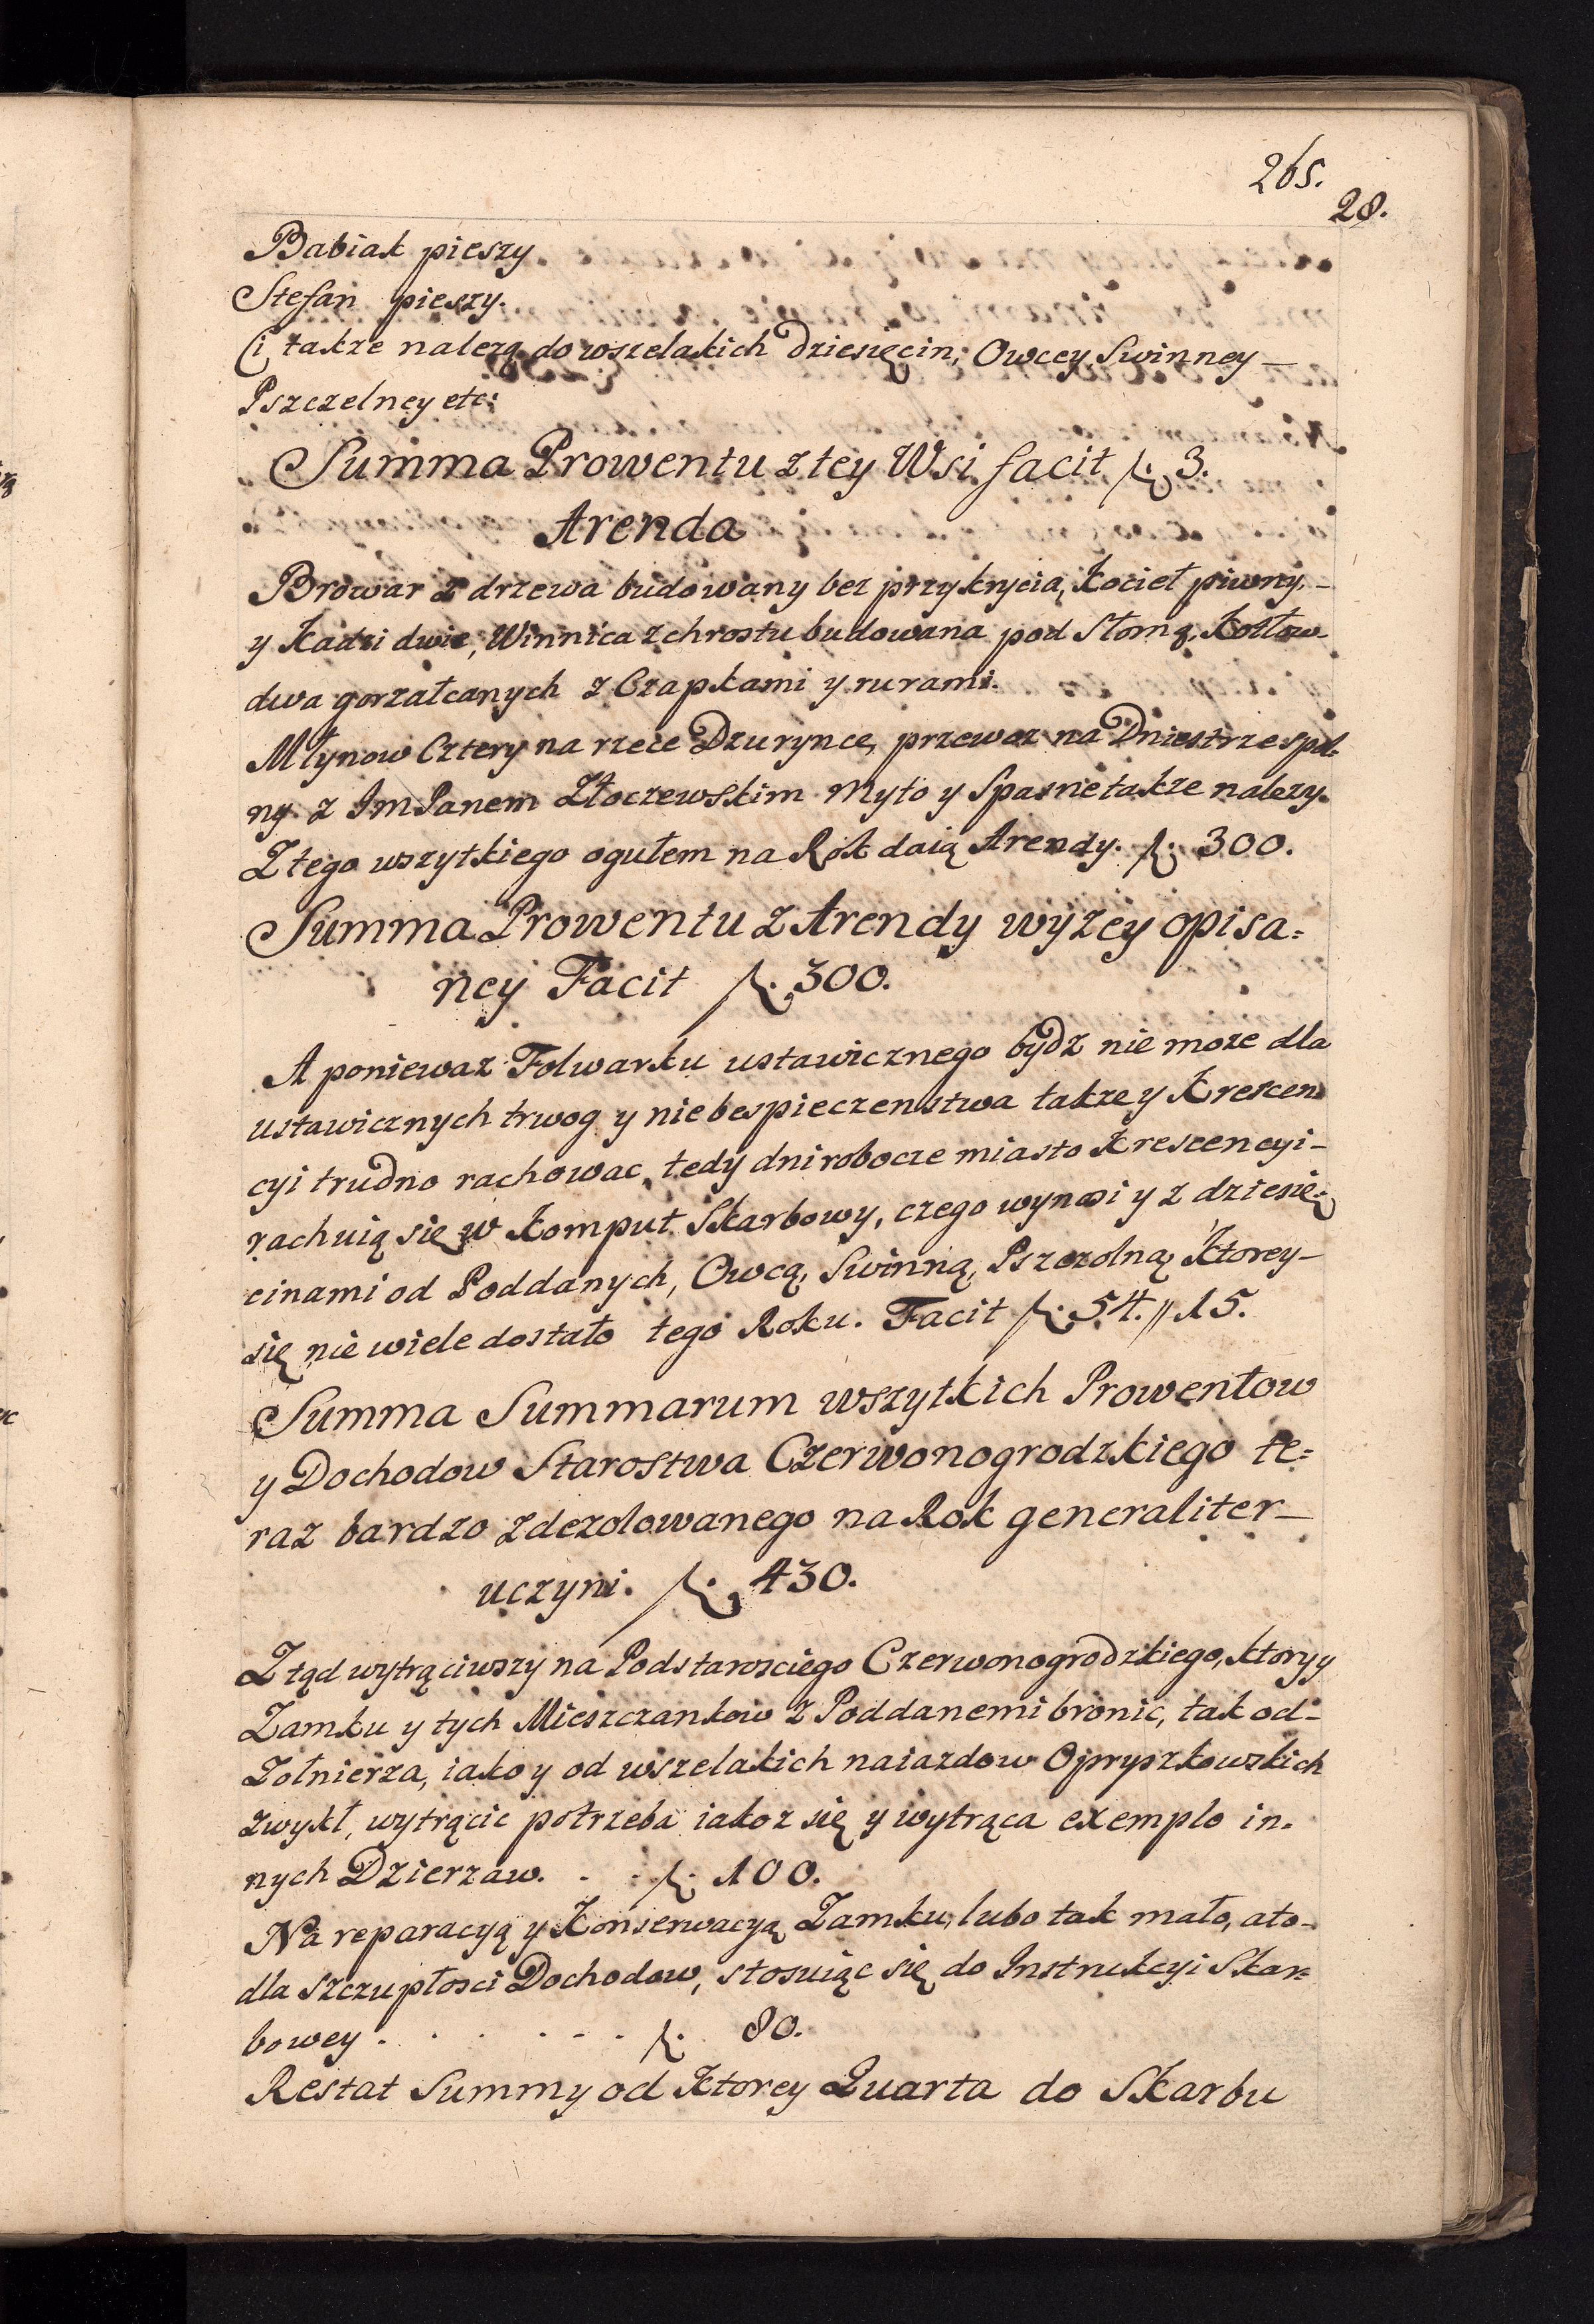 265.
28.
Babiak pieszy
Stefan pieszy.
Ci takze nalezą do wszelakich dziesięcin, Owcey, Swinney –
Pszczelney etc:
Summa Prowentu z tey Wsi facit f. 3.
Arenda
Browar z drzewa budowany bez przykrycia, Kocieł piwny, –
y Kadzi dwie, Winnica z chrostu budowana pod Słomą, Kotłow
dwa gorzałczanych z Czapkami y rurami.
Młynow Cztery na rzece Dzurynce, przewoz na Dniestrze spol-
ny z Im Panem Złoczewskim Myto y Spasne takze nalezy.
Z tego wszytkiego ogułem na Rok daią Arendy. f. 300.
Summa Prowentu z Arendy wyzey opisa=
ney Facit f. 300.
A poniewaz Folwarku ustawicznego bydz nie moze dla
ustawicznych trwog y niebespieczenstwa takze y Krescen
cyi trudno rachowac, tedy dni robocze miasto Krescencyi –
rachuią się w Komput Skarbowy, czego wynosi y z dziesię-
cinami od Poddanych, Owcą, Swinną, Pszczolną Ktorey –
się nie wiele dostało tego Roku. Facit f. 54. // 15.
Summa Summarum wszytkich Prowentow
y Dochodow Starostwa Czerwonogrodzkiego te=
raz bardzo zdezolowanego na Rok generaliter –
uczyni. f. 430.
Z tąd wytrąciwszy na Podstarosciego Czerwonogrodzkiego, ktory y
Zamku y tych Mieszczankow z Poddanemi bronic, tak od –
Zołnierza, iako y od wszelakich naiazdow Opryszkowskich
zwykł, wytrącic potrzeba iakoz się y wytrąca exemplo in-
nych Dzierzaw. . - f. 100.
Na reparacyą y Konserwacyą Zamku, lubo tak mało, a to –
dla szczupłosci Dochodow, stosuiąc się do Instrukcyi Skar=
bowey . . . . - - . f. 80.
Restat Summy od Ktorey Quarta do Skarbu